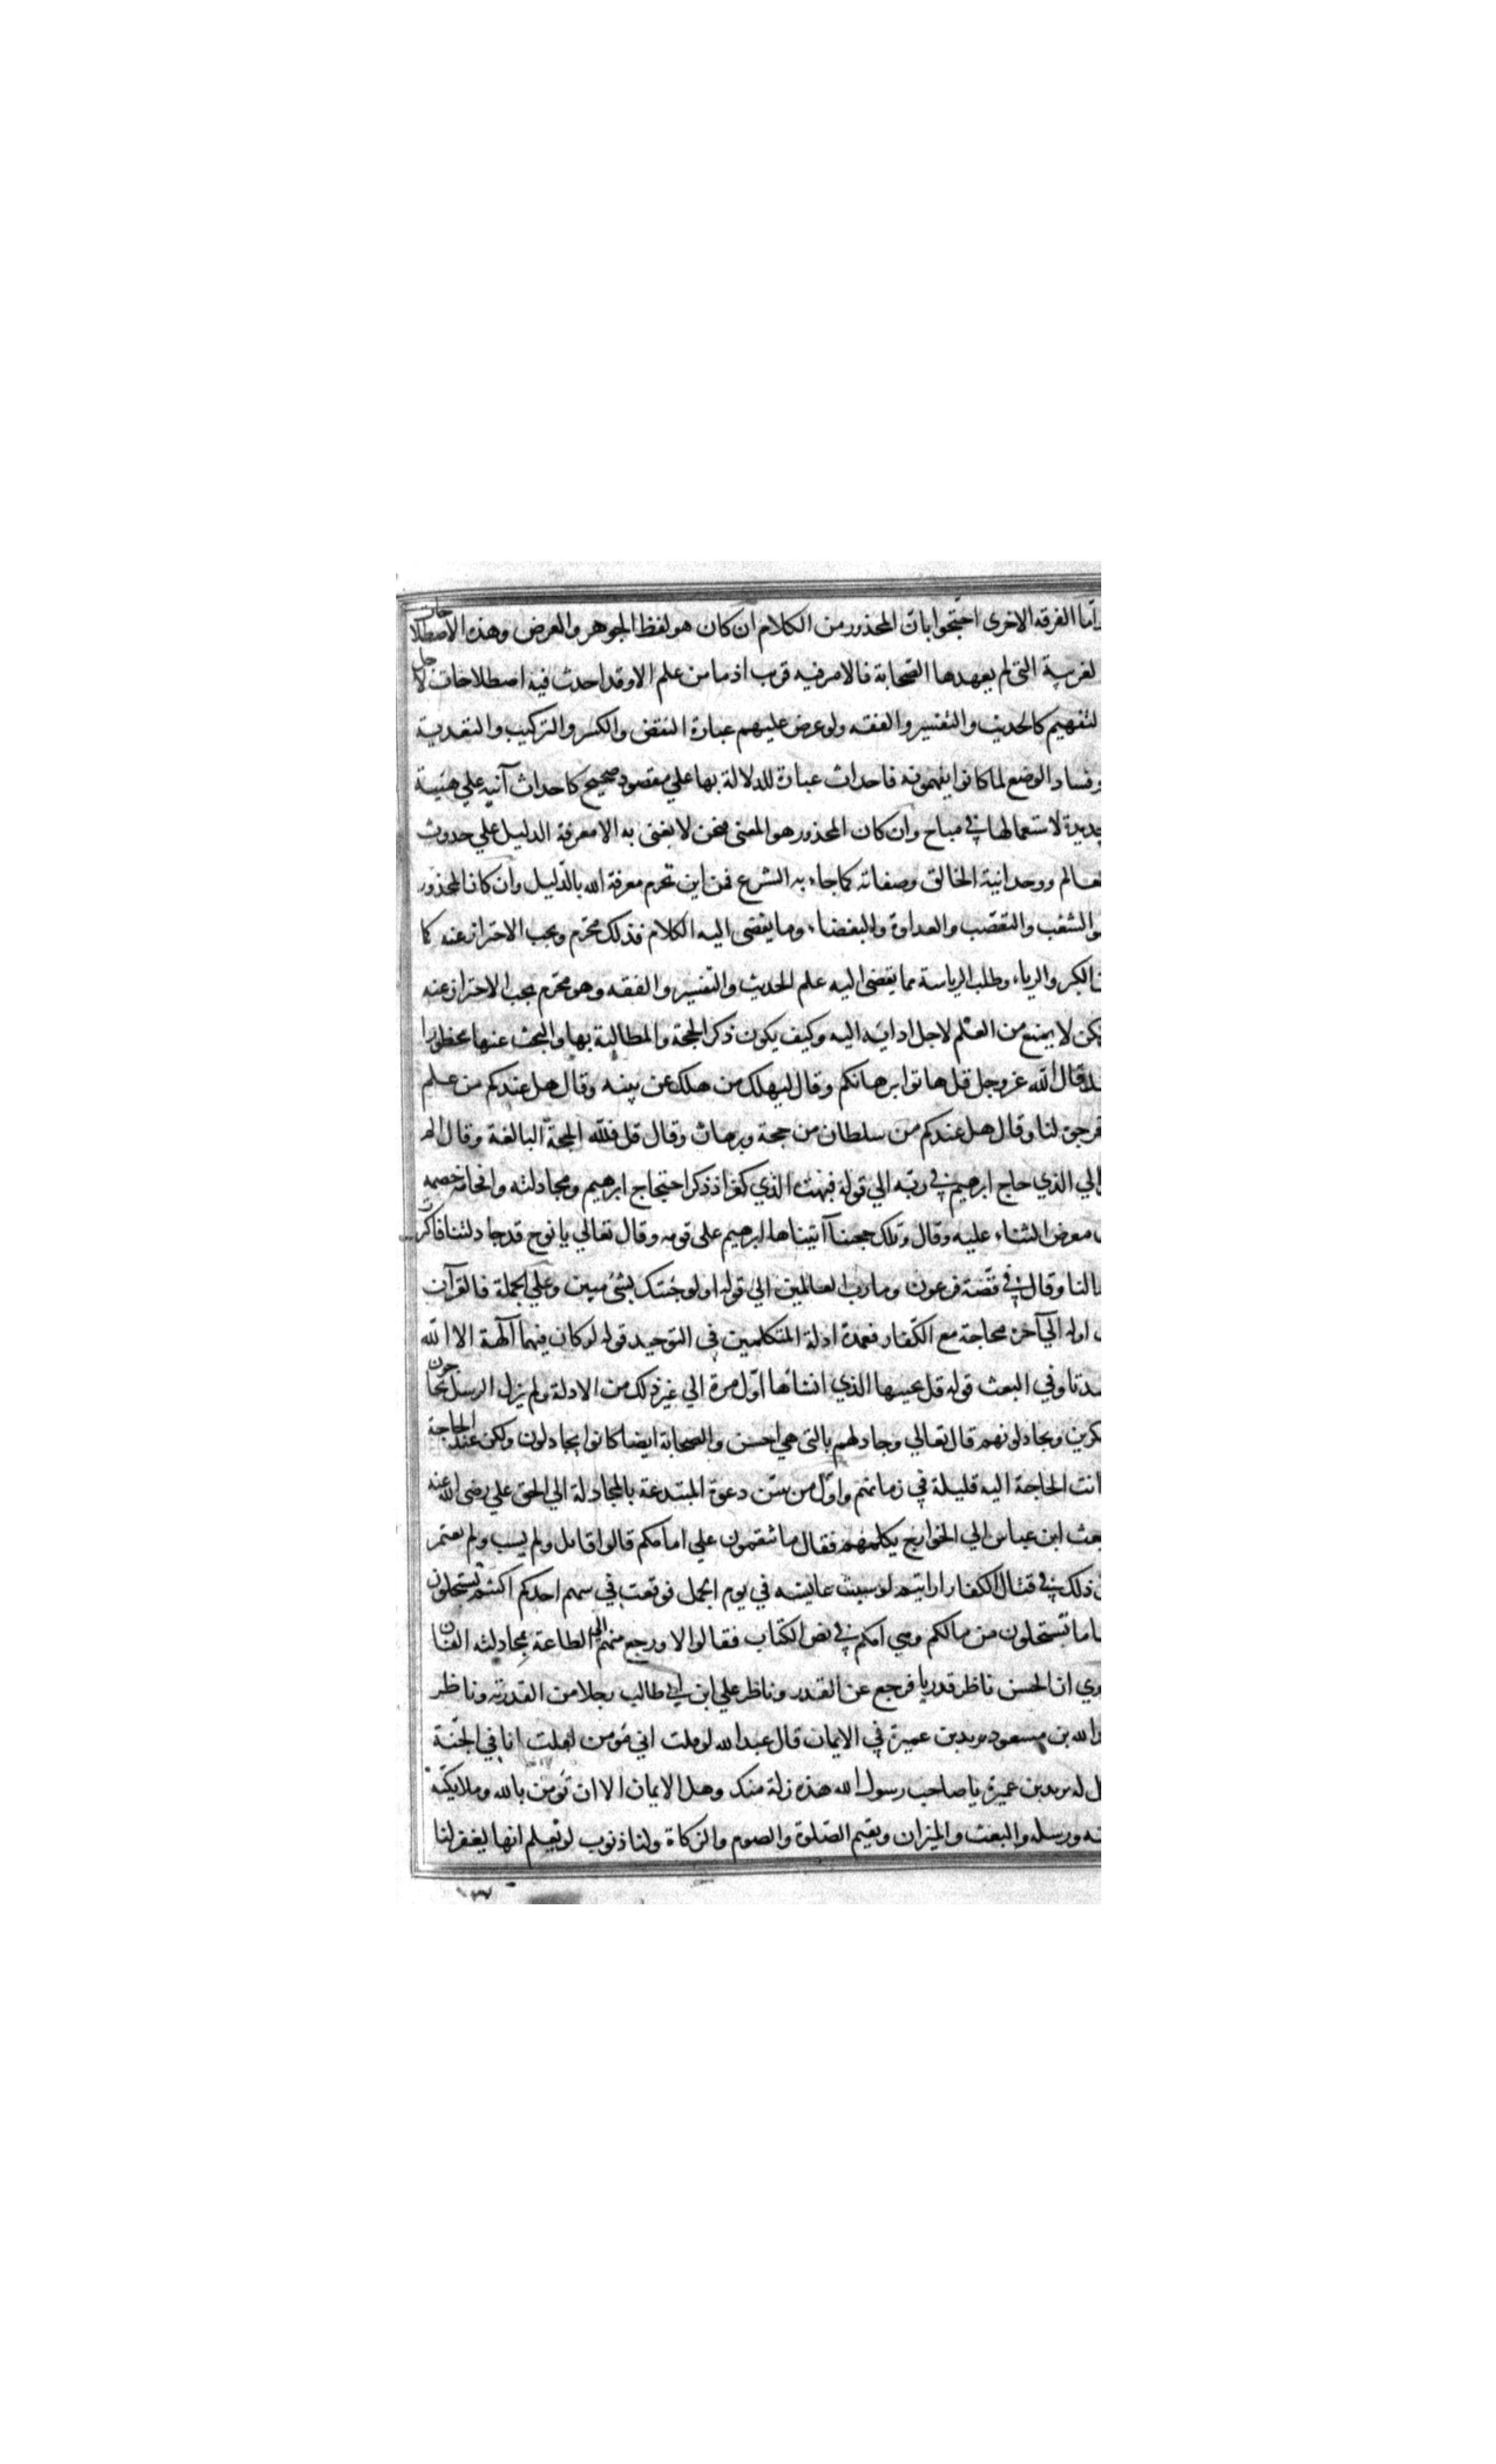 واما الفرقه الاخرى احتجوا بان المحذور من الكلام ان كان هو لفظ الجوهر والعرض وهذه الاصطلاحات
لغريبة التى لم يعهدها الصحابة فالامر فيه قرب اذ ما من علم الا وقد احدث فيه اصطلاحات لاجل
لتفهيم كالحديث والتفسير والفقه ولو عرض عليهم عبارة النقض والكسر والتركيب والتعدية
وفساد الوضع لما كانوا يفهمونه فاحداث عبارة للدلالة بها علي مقصود صحيح كاحداث آنيه علي هيئة
جديدة لاستعمالها في مباح وان كان المحذور هو المعنى فنحن لا يغنى به الا معرفة الدليل علي حدوث
لعالم ووحدانية الخالق وصفاته كما جاء به الشرع فمن اين تحرم معرفة الله بالدليل وان كان المحذور
هو الشغب والتعصب والعداوة والبغضاء وما يفضى اليه الكلام فذلك محرم ويجب الاحتراز عنه كما
ن الكبر والرياء وطلب الرياسة مما يفضى اليه علم الحديث والتفسير والفقه وهو محرم يجب الاحتراز عنه
لكن لا يمنع من العلم لاجل ادائه اليه وكيف يكون ذكر الحجة والمطالبة بها والبحث عنها محظورا
قد قال الله عز وجل قل هاتوا برهانكم وقال ليهلك من هلك عن بينه وقال هل عندكم من علم
فتخرجوه لنا وقال هل عندكم من سلطان من حجة وبرهان وقال قل فلله الحجة البالغة وقال الم
الي الذي حاج ابرهيم في ربه الي قوله فبهت الذي كفر اذ ذكر احتجاج ابرهيم ومجادلته وافحامه خصمه
معرض الثناء عليه وقال وتلك حجتنا آتيناها ابرهيم على قومه وقال تعالي يا نوح قد جادلتنا فاكثرت
دالنا وقال في قصة فرعون وما رب العالمين الي قوله اولو جئتك بشئ مبين وعلي الجملة فالقرآن
اوله الي آخره محاجة مع الكفار فعمدة ادلة المتكلمين في التوحيد قوله لو كان فيهما آلهة الا الله
سدتا وفي البعث قوله قل يحييها الذي انشاها اول مرة الي غير ذلك من الادلة ولم يزل الرسل يحاجون
نكرين ويجادلونهم قال تعالي وجادلهم بالتى هي احسن والصحابة ايضا كانوا يجادلون ولكن عند الحاجة
انت الحاجة اليه قليلة في زمانهم واول من سن دعوة المبتدعة بالمجادلة الي الحق علي رضي الله عنه
بعث ابن عباس الي الخوارج يكلمهم فقال ما تنقمون علي امامكم قالوا قاتل ولم يسب ولم يغتنم
ذلك في قتال الكفار ارايتم لو سبيت عايشه في يوم الجمل فوقعت في سهم احدكم اكنتم تستحلون
ما تستحلون من مالككم وهي امكم في نص الكتاب فقالوا لا ورجع منهم الي الطاعة بمجادلته الفان
وي ان الحسن ناظر قدريا فرجع عن القدر وناظر علي ابن ابي طالب رجلا من القدرية وناظر
دالله بن مسعود يزيد بن عميرة في الايمان قال عبدالله لو قلت اني مؤمن لقلت انا في الجنة
ل له يزيد بن عميرة يا صاحب رسول الله هذه زلة منك وهل الايمان الا ان تؤمن بالله وملايكته
ه ورسله والبعث والميزان وتقيم الصلوة والصوم والزكاة ولنا ذنوب لو نعلم انها يغفر لنا